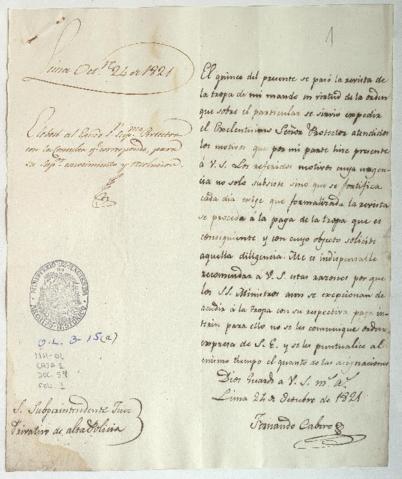 Lima Oct.re 24 de 1821
Elevese al Exmo S.r Sup.mo Protector
con la consulta q.e corresponde, para
su Sup.or conocimiento y resolucion.
1
El quince del presente se pasó la revista de
la tropa de mi mando en virtud de la orden
que sobre el particular se sirvió expedir
el Excelentisimo Señor Protector atendidos
los motivos que por mi parte hice presente
á V.S. Los referidos motivos cuya urgen
cia no solo subsiste sino que se fortifica
cada dia exige que formalizada la revista
se proceda á la paga de la tropa que es
consiguiente y con cuyo objeto solicité
aquella diligencia. Me es indispensable
recomendar á V.S. estas razones por que
los SS. Ministros aun se excepcionan de
acudir á la tropa con su respectiva paga in
terin para ello no se les comunique orden
expresa de S.E. y se les puntualice al
mismo tiempo el quanto de las asignaciones
Dios Guarde á V.S. m.s a.s
Lima 24 de Octubre de 1821
Fernando Cabero
MINISTERIO DE HACIENDA
ARCHIVO HISTORICO
O.L. 3-15(a)
MH-OL
CAJA 1
DOC 59
FOL 1
S. Subpresidente Juez
Privativo de alta Policia